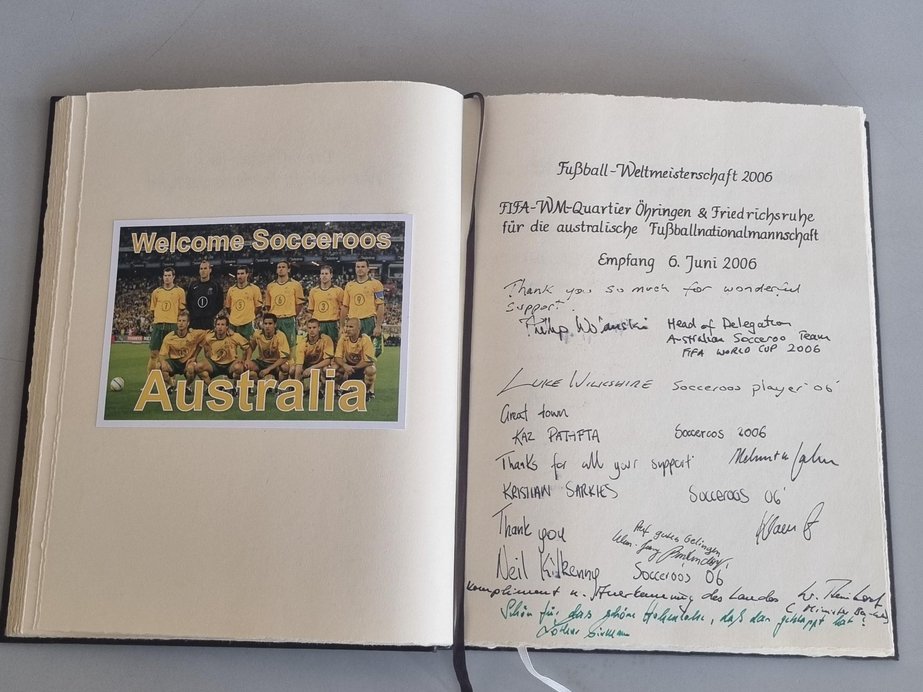 Welcome Socceroos
Australia
Fußball-Weltmeisterschaft 2006
FIFA-WM-Quartier Öhringen & Friedrichsruhe
für die australische Fußballnationalmannschaft
Empfang 6. Juni 2006
Thank you so much for wonderful
support.
Head of Delegation
Australian Socceroo Team
FIFA WORLD CUP 2006
LUKE WILKSHIRE Socceroos player 06'
Great town
KAZ PATAFTA Socceroos 2006
Thanks for all your support
KRISTIAN SARKIES Socceroos 06'
Thank you
Auf gutes Gelingen
Neil Kilkenny Socceroos 06
Kompliment u. Anerkennung des Landes
Schön für das schöne Hohenlohe, daß das geklappt hat!